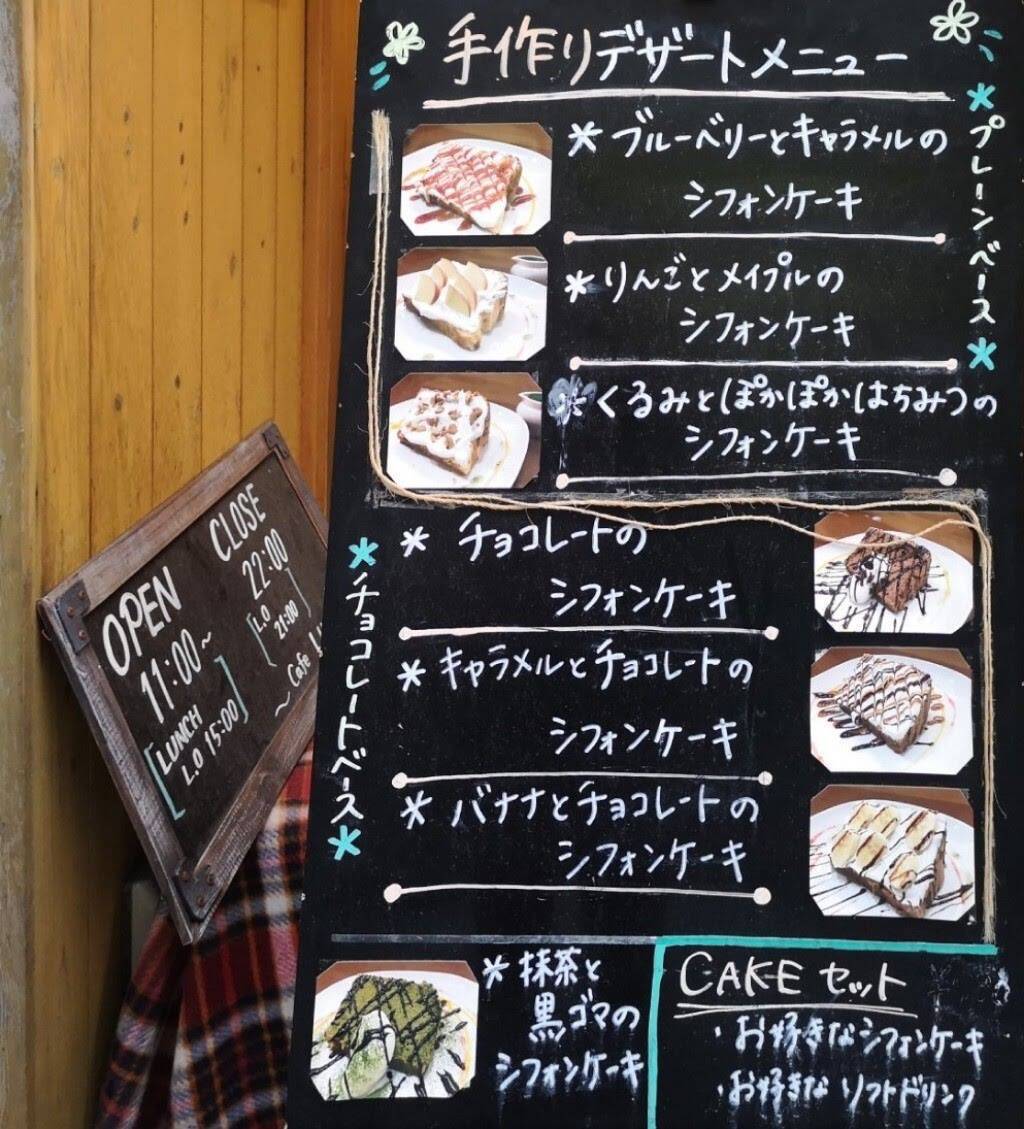 手作りデザートメニュー
*プレーンベース*
* ブルーベリーとキャラメルの
シフォンケーキ
* りんごとメイプルの
シフォンケーキ
* くるみとぽかぽかはちみつの
シフォンケーキ
*チョコレートベース*
* チョコレートの
シフォンケーキ
* キャラメルとチョコレートの
シフォンケーキ
* バナナとチョコレートの
シフォンケーキ
* 抹茶と
黒ゴマの
シフォンケーキ
CAKE セット
・お好きなシフォンケーキ
・お好きな ソフトドリンク
OPEN
11:00~
[LUNCH
L.O 15:00]
CLOSE
22:00
[L.O
21:00]
~ Cafe